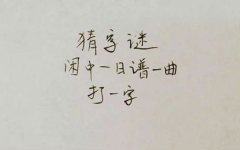 猜字谜
闲中一日谱一曲
打一字